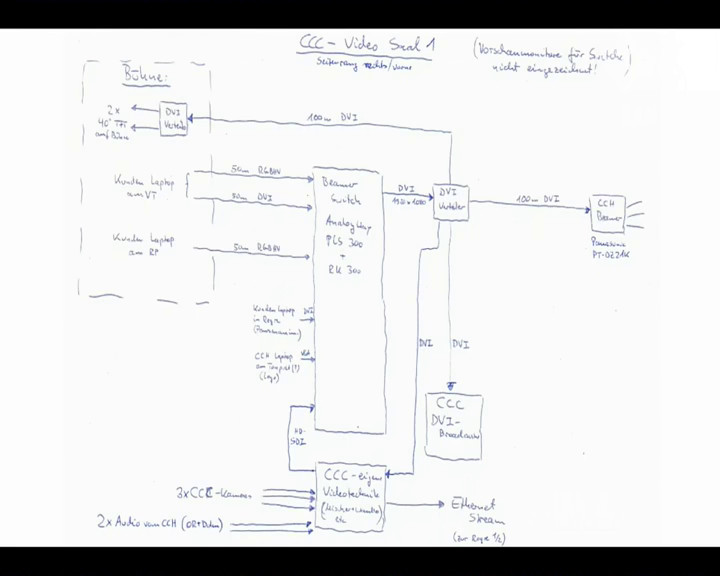 CCC - Video Saal 1
Seiteneingang rechts/vorne
(Vorschaumonitore für Switche
nicht eingezeichnet!)
Bühne:
2x
40" TFT
auf Bühne
DVI
Verteiler
100m DVI
Kunden Laptop
am VT
50m RGBHV
50m DVI
Kunden Laptop
am RP
50m RGBHV
Beamer
Switch
Analog Way
PLS 300
+
RK 300
DVI
1920x1080
DVI
Verteiler
100m DVI
CCH
Beamer
Panasonic
PT-DZ21K
Kunden Laptop
in Regie
DVI
CCH Laptop
(Logo)
HD-
SDI
DVI
DVI
CCC
DVI-
Broadcaster
CCC-eigene
Videotechnik
etc
3x CCC-Kameras
2x Audio vom CCH
Ethernet
Stream
(zur Regie 1/2)